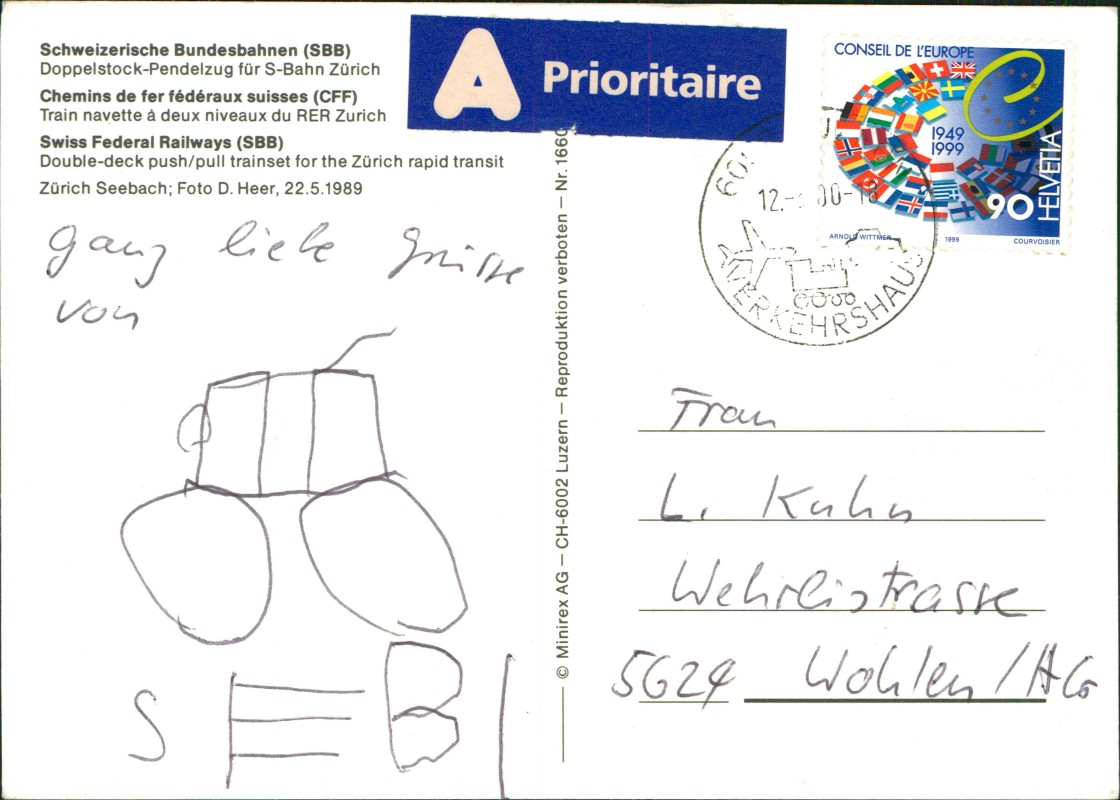 Schweizerische Bundesbahnen (SBB)
Doppelstock-Pendelzug für S-Bahn Zürich
Chemins de fer fédéraux suisses (CFF)
Train navette à deux niveaux du RER Zurich
Swiss Federal Railways (SBB)
Double-deck push/pull trainset for the Zürich rapid transit
Zürich Seebach; Foto D. Heer, 22.5.1989
Ganz liebe Grüsse
von
S E B I
© Minirex AG – CH-6002 Luzern – Reproduktion verboten – Nr. 1660
A Prioritaire
CONSEIL DE L'EUROPE
1949
1999
HELVETIA
90
ARNOLD WITTMER 1999 COURVOISIER
VERKEHRSHAUS
Frau
L. Kuhn
Wehrlistrasse
Wohlen / AG